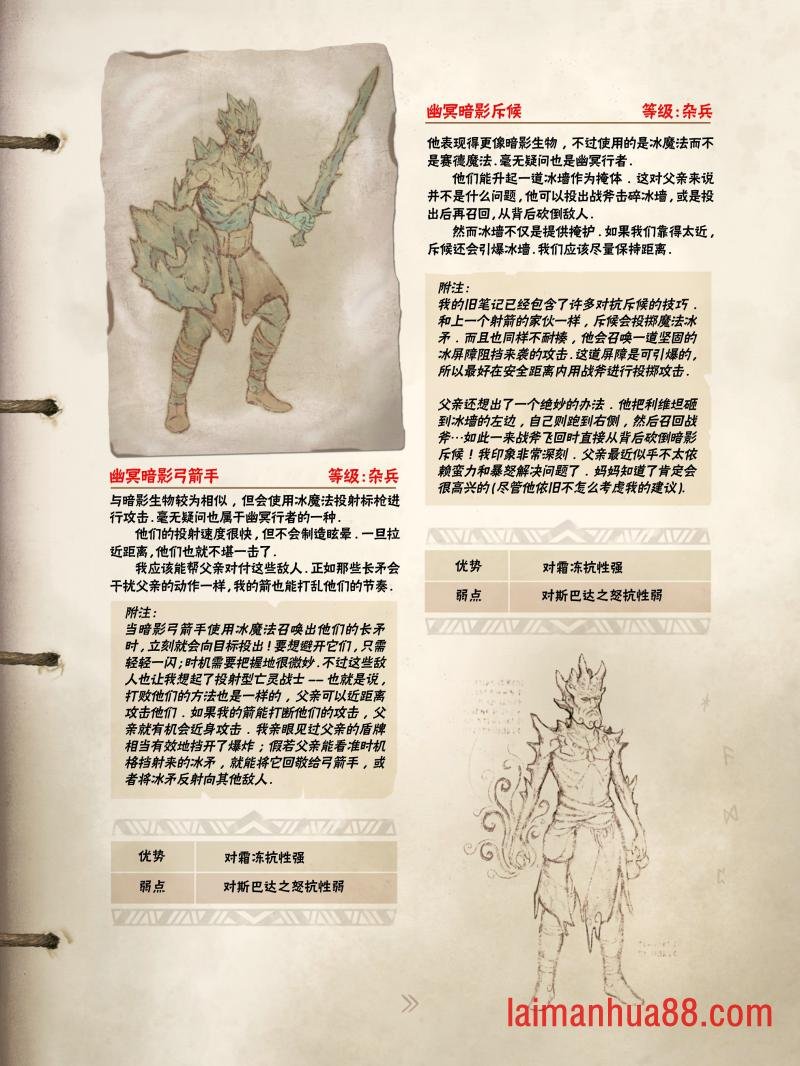 幽冥暗影弓箭手 等级:杂兵
与暗影生物较为相似，但会使用冰魔法投射标枪进
行攻击.毫无疑问也属于幽冥行者的一种.
他们的投射速度很快,但不会制造眩晕.一旦拉
近距离,他们也就不堪一击了.
我应该能帮父亲对付这些敌人.正如那些长矛会
干扰父亲的动作一样,我的箭也能打乱他们的节奏.
附注:
当暗影弓箭手使用冰魔法召唤出他们的长矛
时,立刻就会向目标投出!要想避开它们,只需
轻轻一闪;时机需要把握地很微妙.不过这些敌
人也让我想起了投射型亡灵战士--也就是说,
打败他们的方法也是一样的，父亲可以近距离
攻击他们．如果我的箭能打断他们的攻击，父
亲就有机会近身攻击．我亲眼见过父亲的盾牌
相当有效地挡开了爆炸；假若父亲能看准时机
格挡射来的冰矛，就能将它回敬给弓箭手，或
者将冰矛反射向其他敌人.
优势 对霜冻抗性强
弱点 对斯巴达之怒抗性弱
幽冥暗影斥候 等级:杂兵
他表现得更像暗影生物，不过使用的是冰魔法而不
是赛德魔法.毫无疑问也是幽冥行者.
他们能升起一道冰墙作为掩体．这对父亲来说
并不是什么问题,他可以投出战斧击碎冰墙,或是投
出后再召回,从背后砍倒敌人.
然而冰墙不仅是提供掩护．如果我们靠得太近,
斥候还会引爆冰墙.我们应该尽量保持距离.
附注:
我的旧笔记已经包含了许多对抗斥候的技巧．
和上一个射箭的家伙一样，斥候会投掷魔法冰
矛．而且也同样不耐揍，他会召唤一道坚固的
冰屏障阻挡来袭的攻击.这道屏障是可引爆的,
所以最好在安全距离内用战斧进行投掷攻击.
父亲还想出了一个绝妙的办法．他把利维坦砸
到冰墙的左边，自己则跑到右侧，然后召回战
斧…如此一来战斧飞回时直接从背后砍倒暗影
斥候！我印象非常深刻．父亲最近似乎不太依
赖蛮力和暴怒解决问题了．妈妈知道了肯定会
很高兴的(尽管他依旧不怎么考虑我的建议).
优势 对霜冻抗性强
弱点 对斯巴达之怒抗性弱
laimanhua88.com